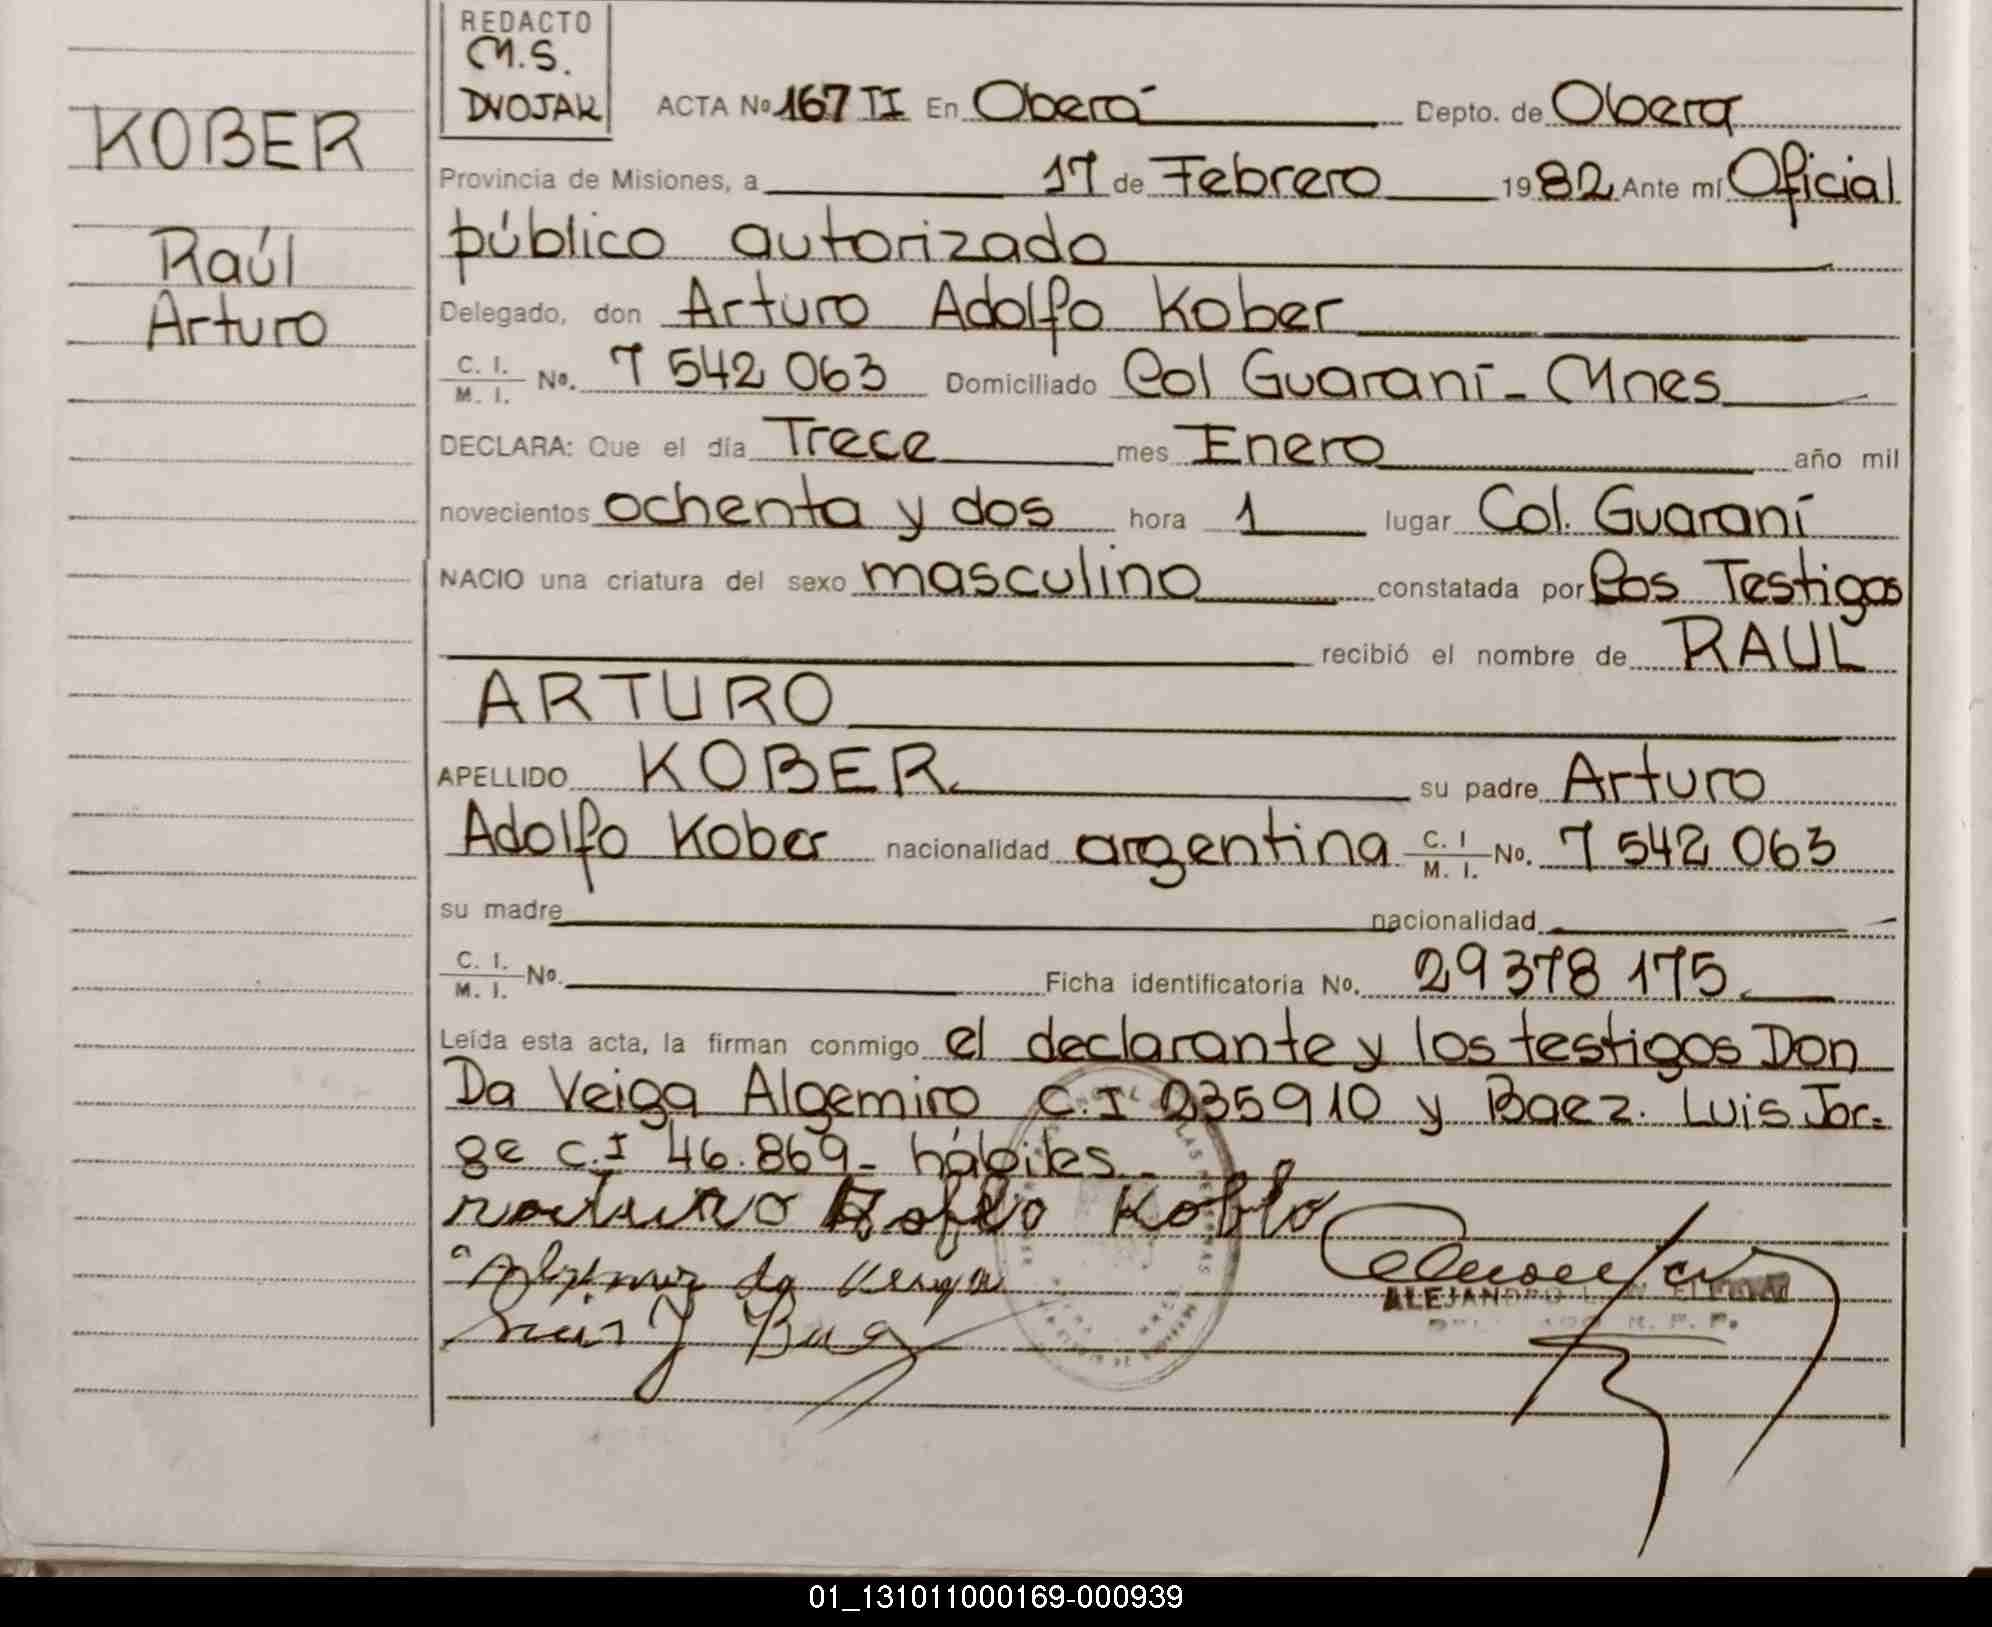 REDACTO
M.S.
DVOJAK
KOBER
Raúl
Arturo
ACTA No 167 II En Oberá Depto. de Obera
Provincia de Misiones, a 17 de Febrero 1982 Ante mí Oficial
público autorizado
Delegado, don Arturo Adolfo Kober
C. I. / M. I. No. 7 542 063 Domiciliado Col Guaraní - Mnes
DECLARA: Que el día Trece mes Enero año mil
novecientos ochenta y dos hora 1 lugar Col. Guaraní
NACIO una criatura del sexo masculino constatada por Los Testigos
recibió el nombre de RAUL
ARTURO
APELLIDO KOBER su padre Arturo
Adolfo Kober nacionalidad argentina C. I / M. I. No. 7 542 063
su madre nacionalidad
C. I. / M. I. No. Ficha identificatoria No. 29378 175
Leída esta acta, la firman conmigo el declarante y los testigos Don
Da Veiga Algemiro C.I 235910 y Baez. Luis Jor-
ge C.I 46.869- hábiles.-
ALEJANDRO
01_131011000169-000939